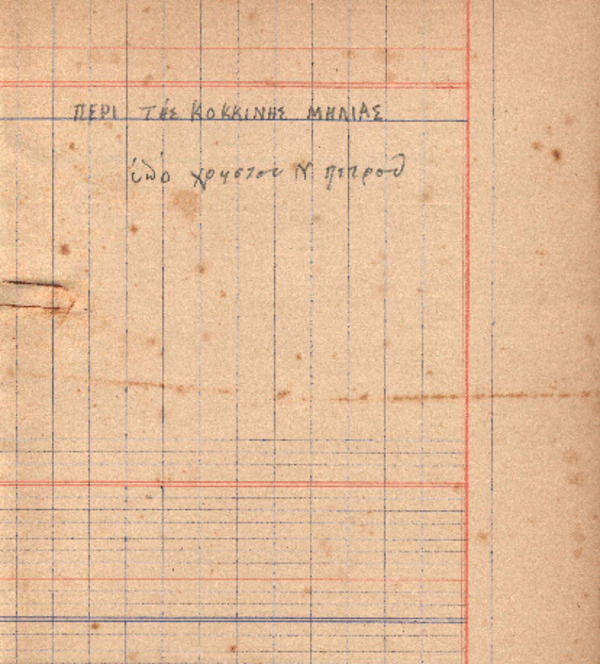 ΠΕΡΙ ΤῆΣ ΚΟΚΚΙΝΗΣ ΜΗΛΙΑΣ
ὑπὸ χρηστου Ν πετρου